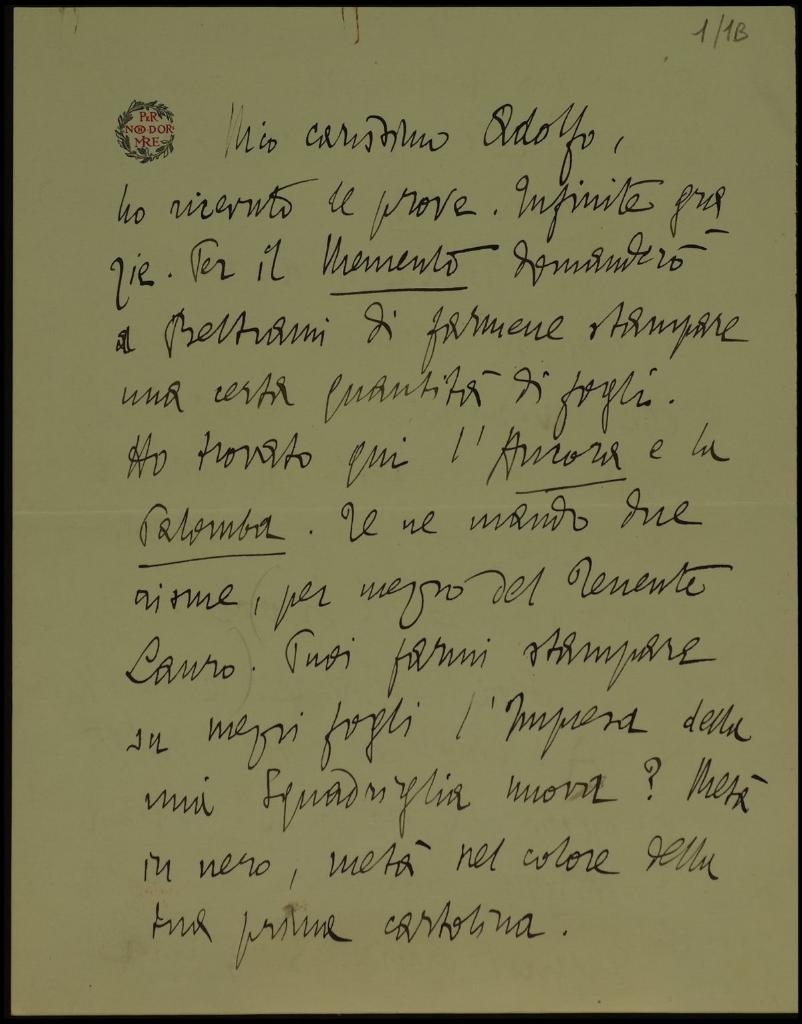 1/1B
PER
NON DOR
MIRE
Mio carissimo Adolfo,
ho ricevuto le prove. Infinite gra
zie. Per il Memento domanderò
a Beltrami di farmene stampare
una certa quantità di fogli.
Ho trovato qui l'Ancora e la
Palomba. Te ne mando due
risme, per mezzo del Tenente
Lauro. Puoi farmi stampare
su mezzi fogli l'Impresa della
mia Squadriglia nuova? Metà
in nero, metà nel colore della
tua prima cartolina.